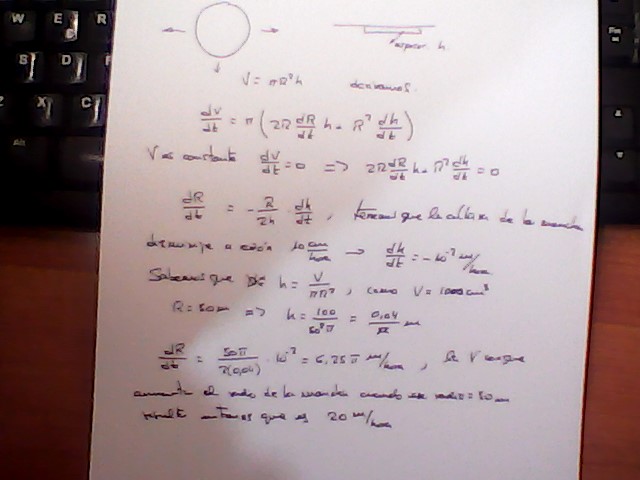 W E R
S D
Z X C
Alt
Pn
espesor h.
V = πR²h derivamos.
dV/dt = π (2R dR/dt h + R² dh/dt)
V es constante dV/dt = 0 => 2R dR/dt h + R² dh/dt = 0
dR/dt = - R/2h · dh/dt , tenemos que la altura de la mancha
disminuye a razón 10 cm/hora → dh/dt = -10⁻² m/hora
Sabemos que h = V/πR² , como V = 100 cm³
R = 50 m => h = 100/50²π = 0,04/π m
dR/dt = 50π/2(0,04) · 10⁻² = 6,25 π m/hora , la V con que
aumenta el radio de la mancha cuando ese radio = 50 m
resulta entonces que es 20 m/hora